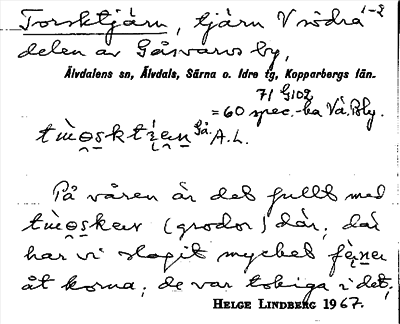 Torsktjärn, tjärn V södra 1-2
delen av Gåsvarvs by,
Älvdalens sn, Älvdals, Särna o. Idre tg, Kopparbergs län.
71 G102
= 60 spec.-ka Vä. Bly.
A.L.
På våren är det fullt med
(grodor) där; där
har vi slagit mycket
åt korna; de var tokiga i det;
HELGE LINDBERG 1967.